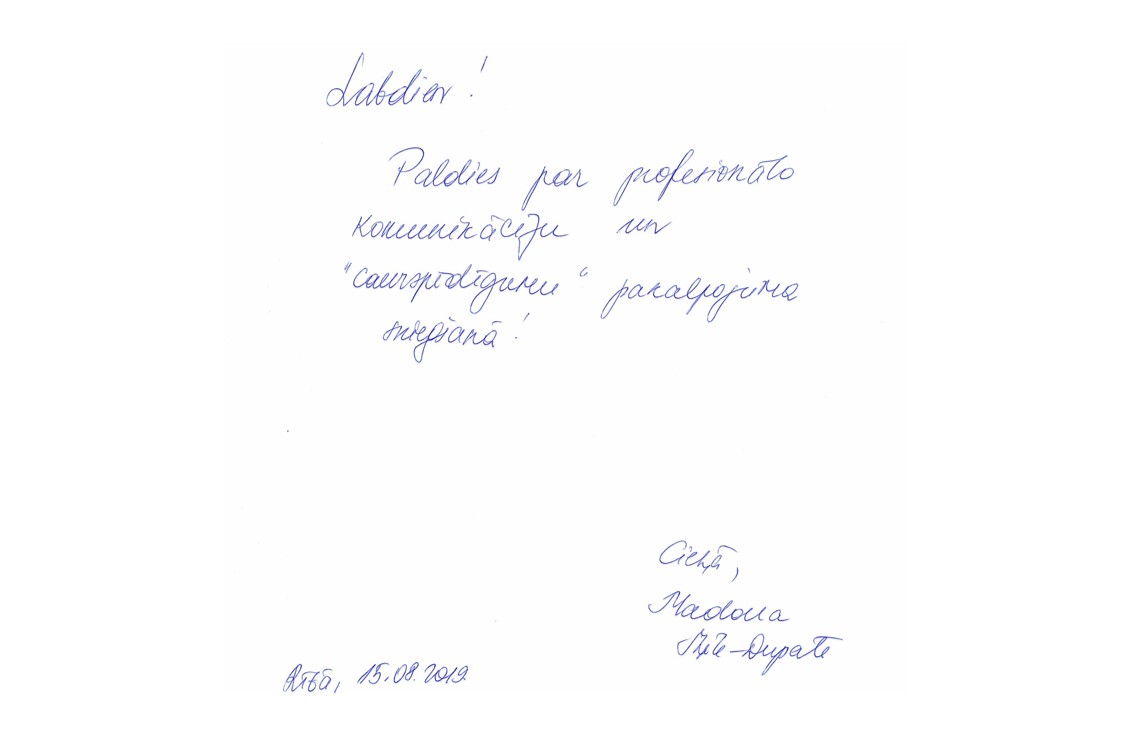 Labdien!
Paldies par profesionālo
komunikāciju un
"caurspīdīgumu" pakalpojuma
sniegšanā!
Cieņā,
Madona
-Dupate
Rīgā, 15.08.2019